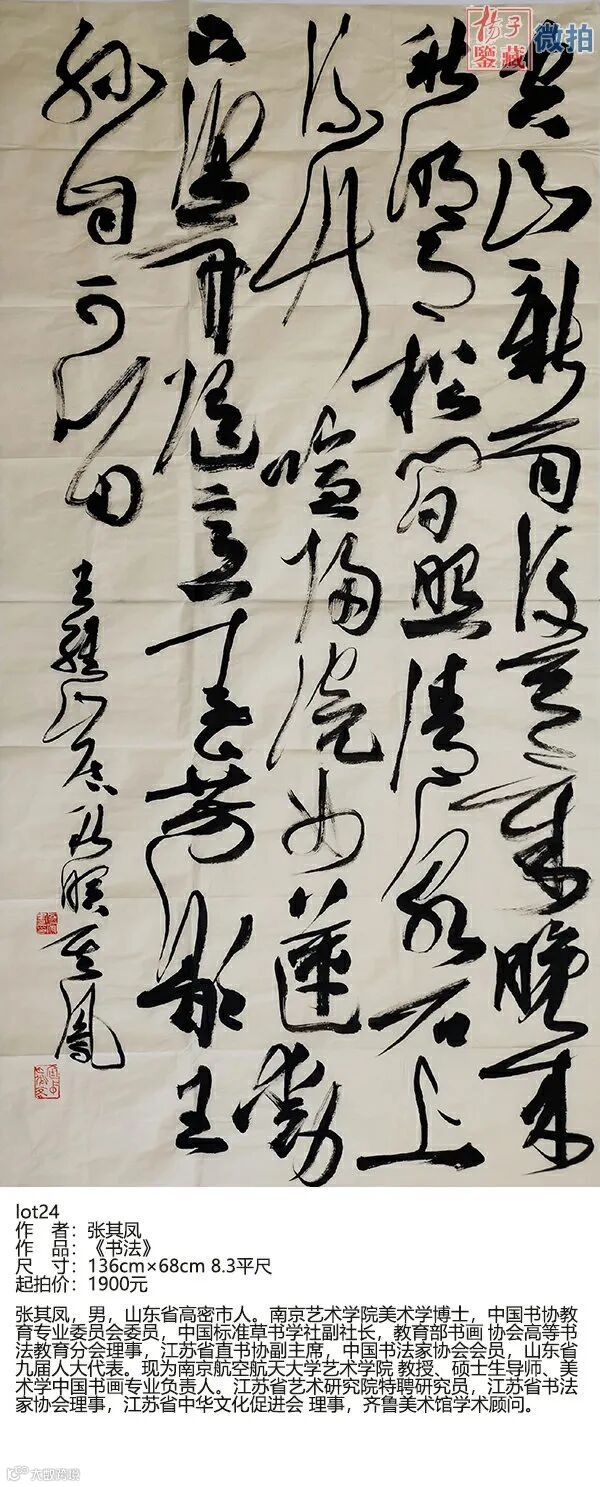 揚子
鑒藏
微拍
空山新雨後天氣晚來
秋明月松間照清泉石上
流竹喧歸浣女蓮動
下漁舟隨意春芳歇王
孫自可留
王維山居秋暝其鳳
lot24
作 者：张其凤
作 品：《书法》
尺 寸：136cm×68cm 8.3平尺
起拍价：1900元
张其凤，男，山东省高密市人。南京艺术学院美术学博士，中国书协教
育专业委员会委员，中国标准草书学社副社长，教育部书画 协会高等书
法教育分会理事，江苏省直书协副主席，中国书法家协会会员，山东省
九届人大代表。现为南京航空航天大学艺术学院 教授、硕士生导师、美
术学中国书画专业负责人。江苏省艺术研究院特聘研究员，江苏省书法
家协会理事，江苏省中华文化促进会 理事，齐鲁美术馆学术顾问。
大数跨境